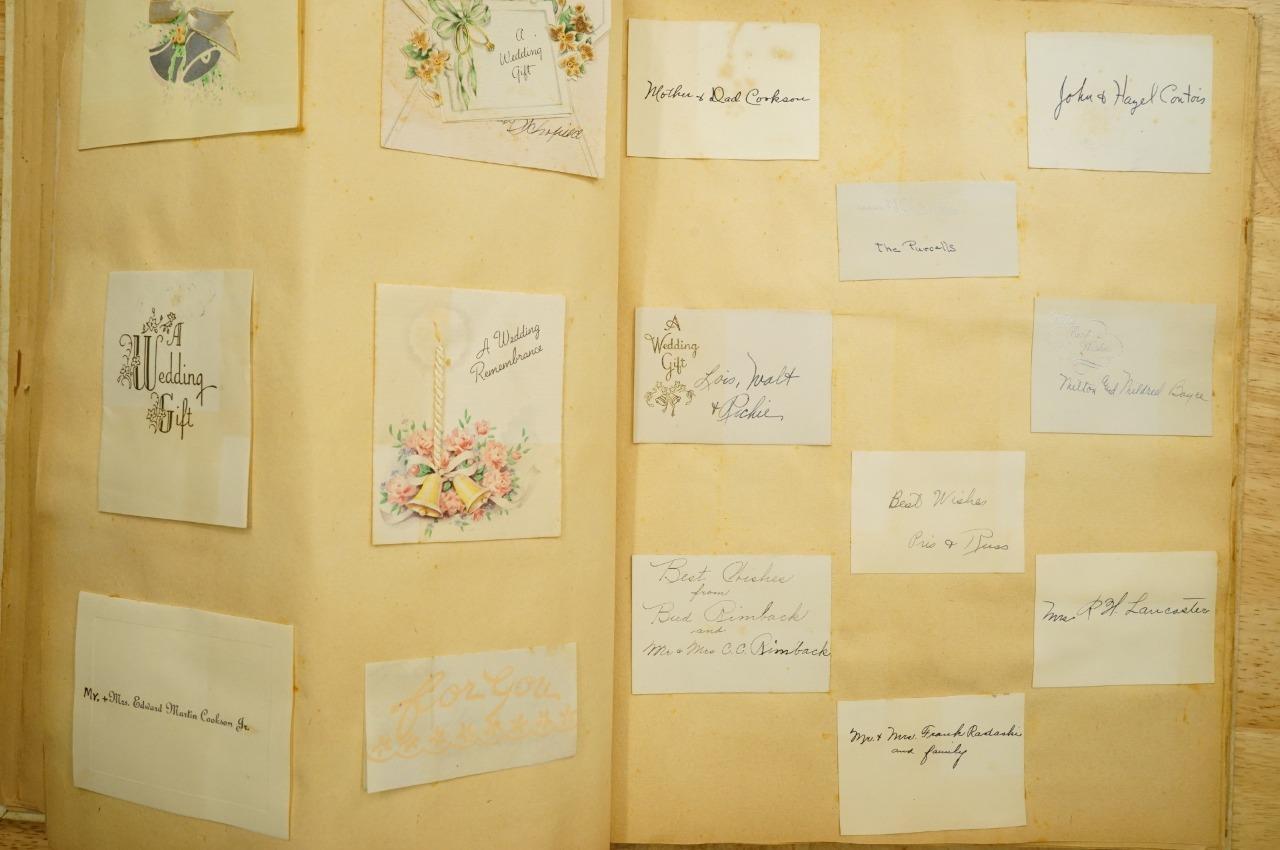 A
Wedding
Gift
A
Wedding
Gift
A Wedding
Remembrance
Mr. + Mrs. Edward Martin Cookson Jr.
for You
Mother & Dad Cookson
John & Hazel Contois
The Purcells
A
Wedding
Gift
Lois, Walt
& Richie
Best
Wishes
Milton and Mildred
Best Wishes
Pris & Russ
Best Wishes
from
Bud Rimback
and
Mr & Mrs C.C. Rimback
Mrs. R. H. Lancaster
Mr. & Mrs. Frank
and family